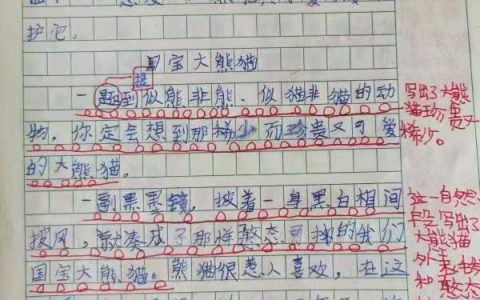 护它。
国宝大熊猫
一提到似熊非熊、似猫非猫的动
物，你定会想到那稀少而珍贵又可爱
的大熊猫。
一副黑黑镜，披着一身黑白相间
披风，就凑成了那样憨态可掬的我们
国宝大熊猫。熊猫很惹人喜欢，在这
写出了大熊
猫珍贵又
稀少。
这一自然
段写出了
大熊猫
外表
和憨态